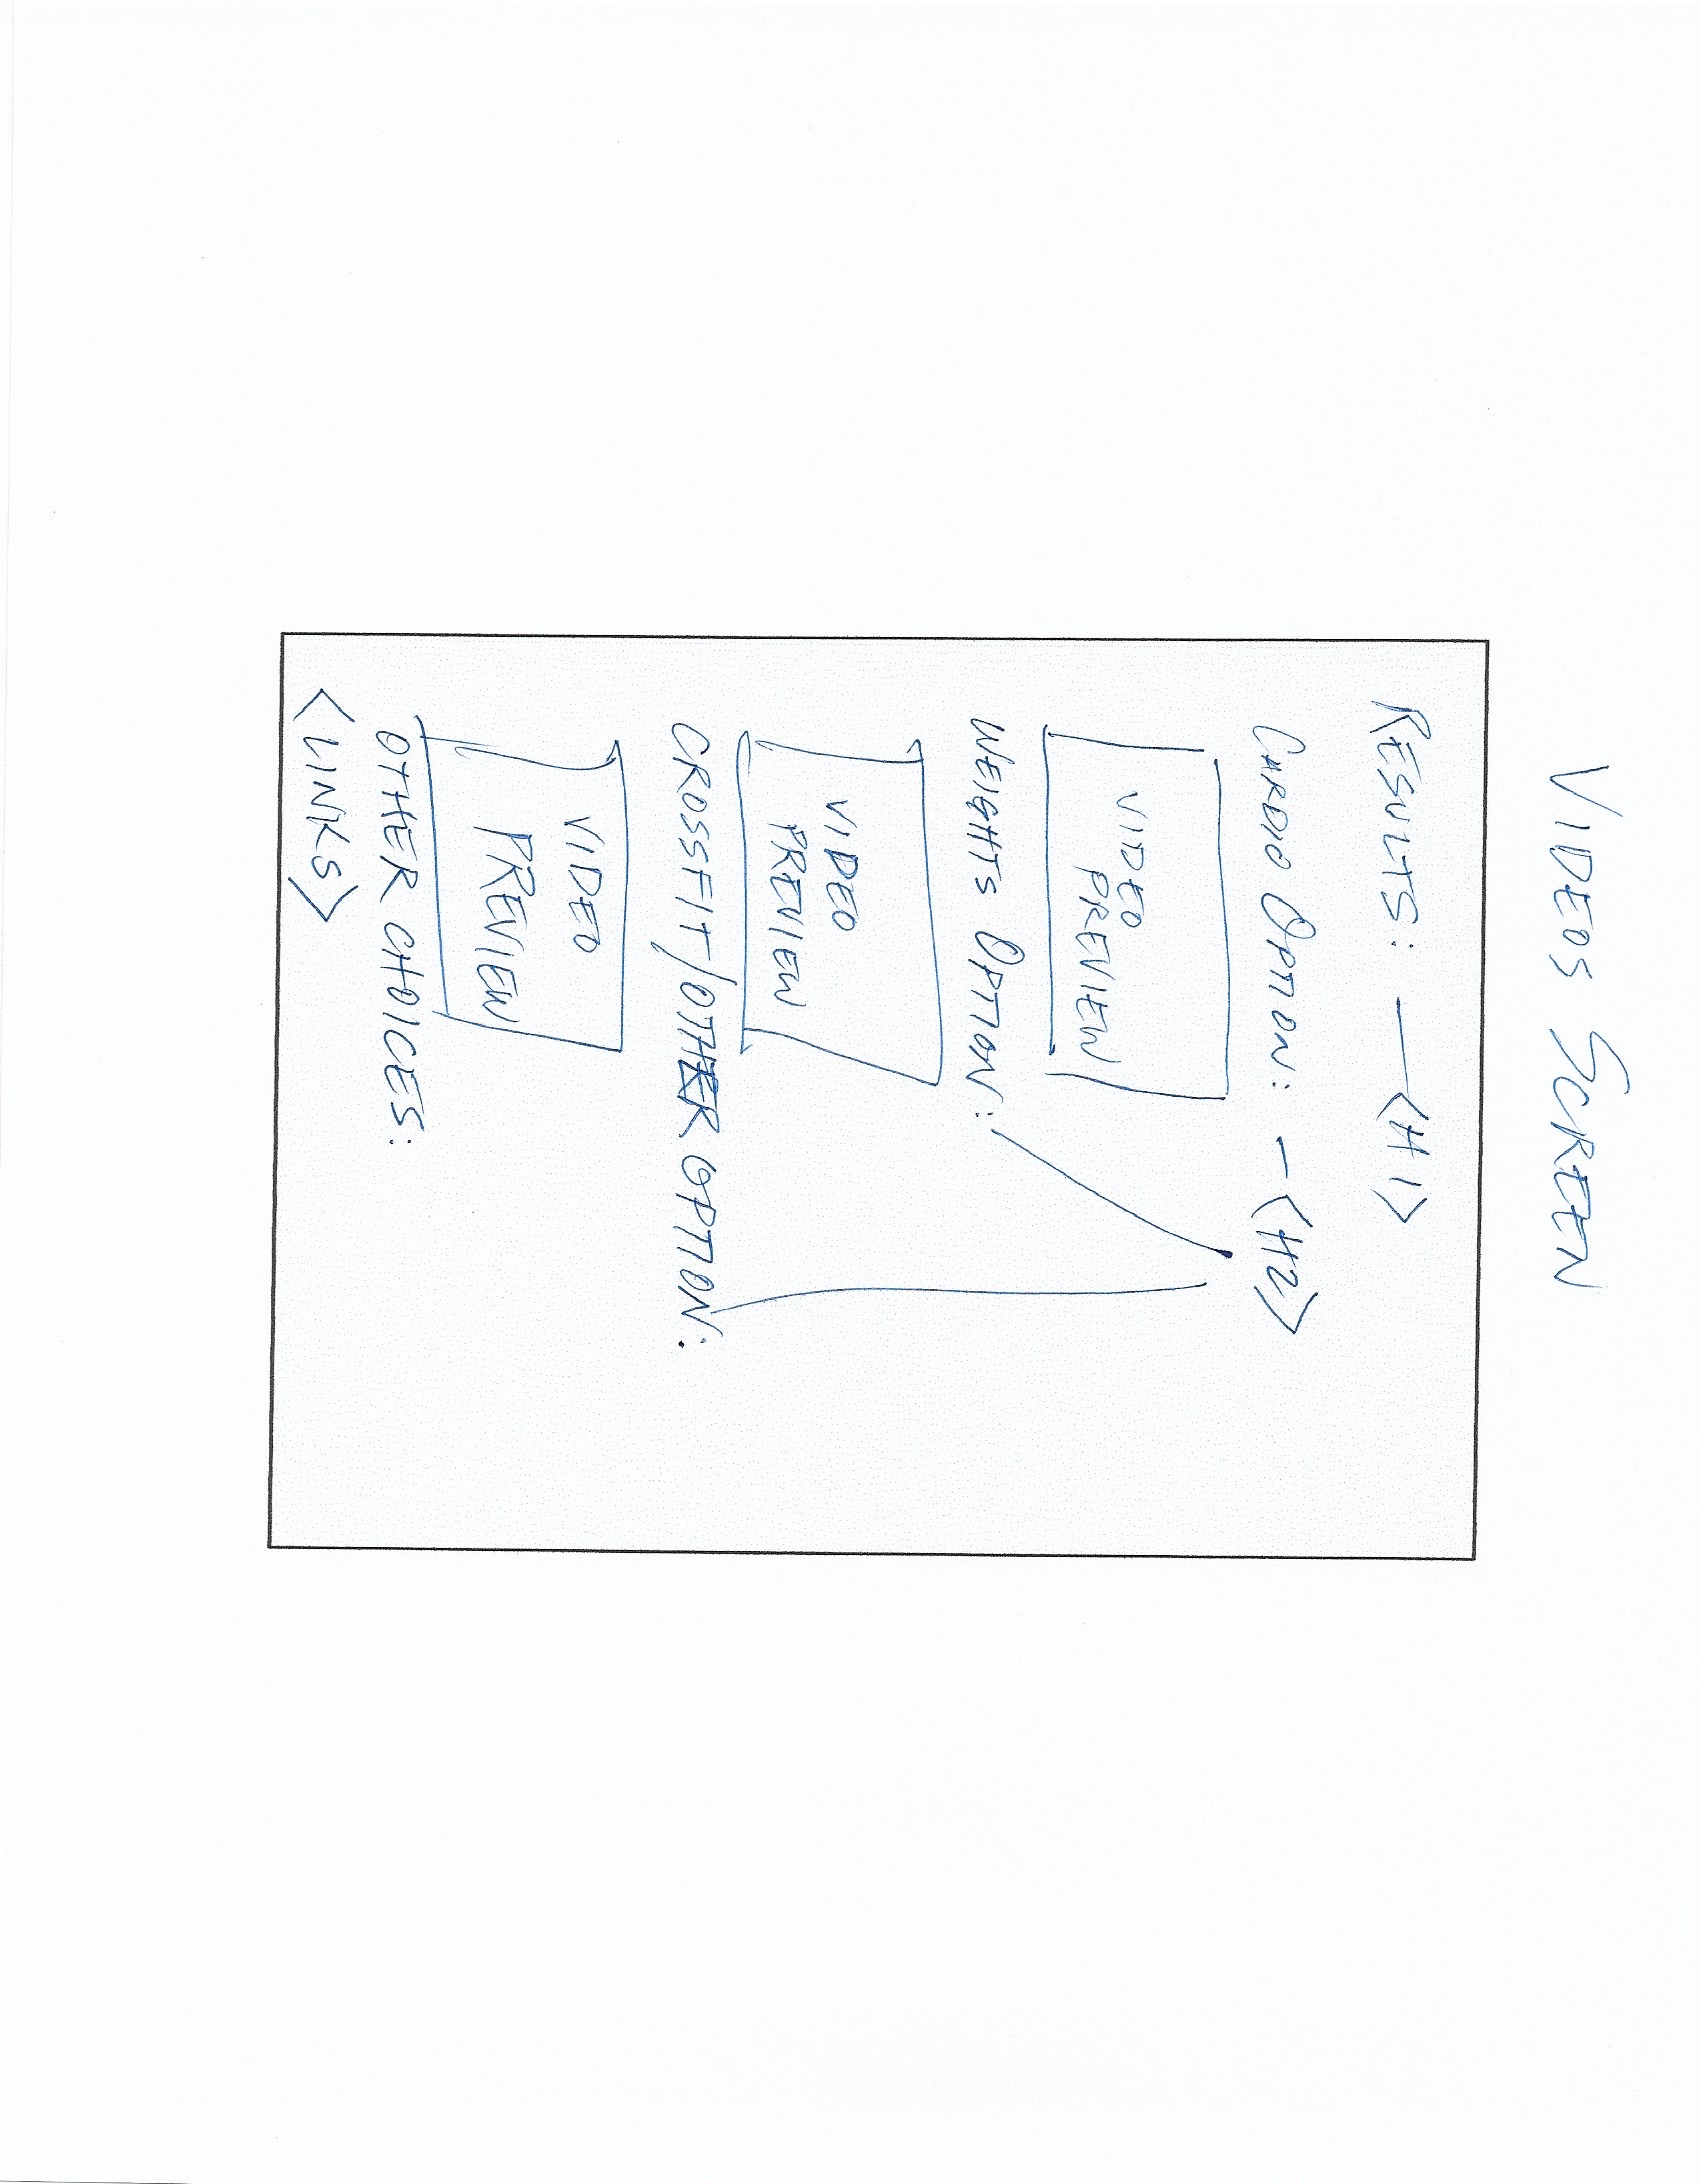 VIDEOS SCREEN
RESULTS: — <H1>
CARDIO OPTION: — <H2>
VIDEO
PREVIEW
WEIGHTS OPTION:
VIDEO
PREVIEW
CROSSFIT/OTHER OPTION:
VIDEO
PREVIEW
OTHER CHOICES:
<LINKS>